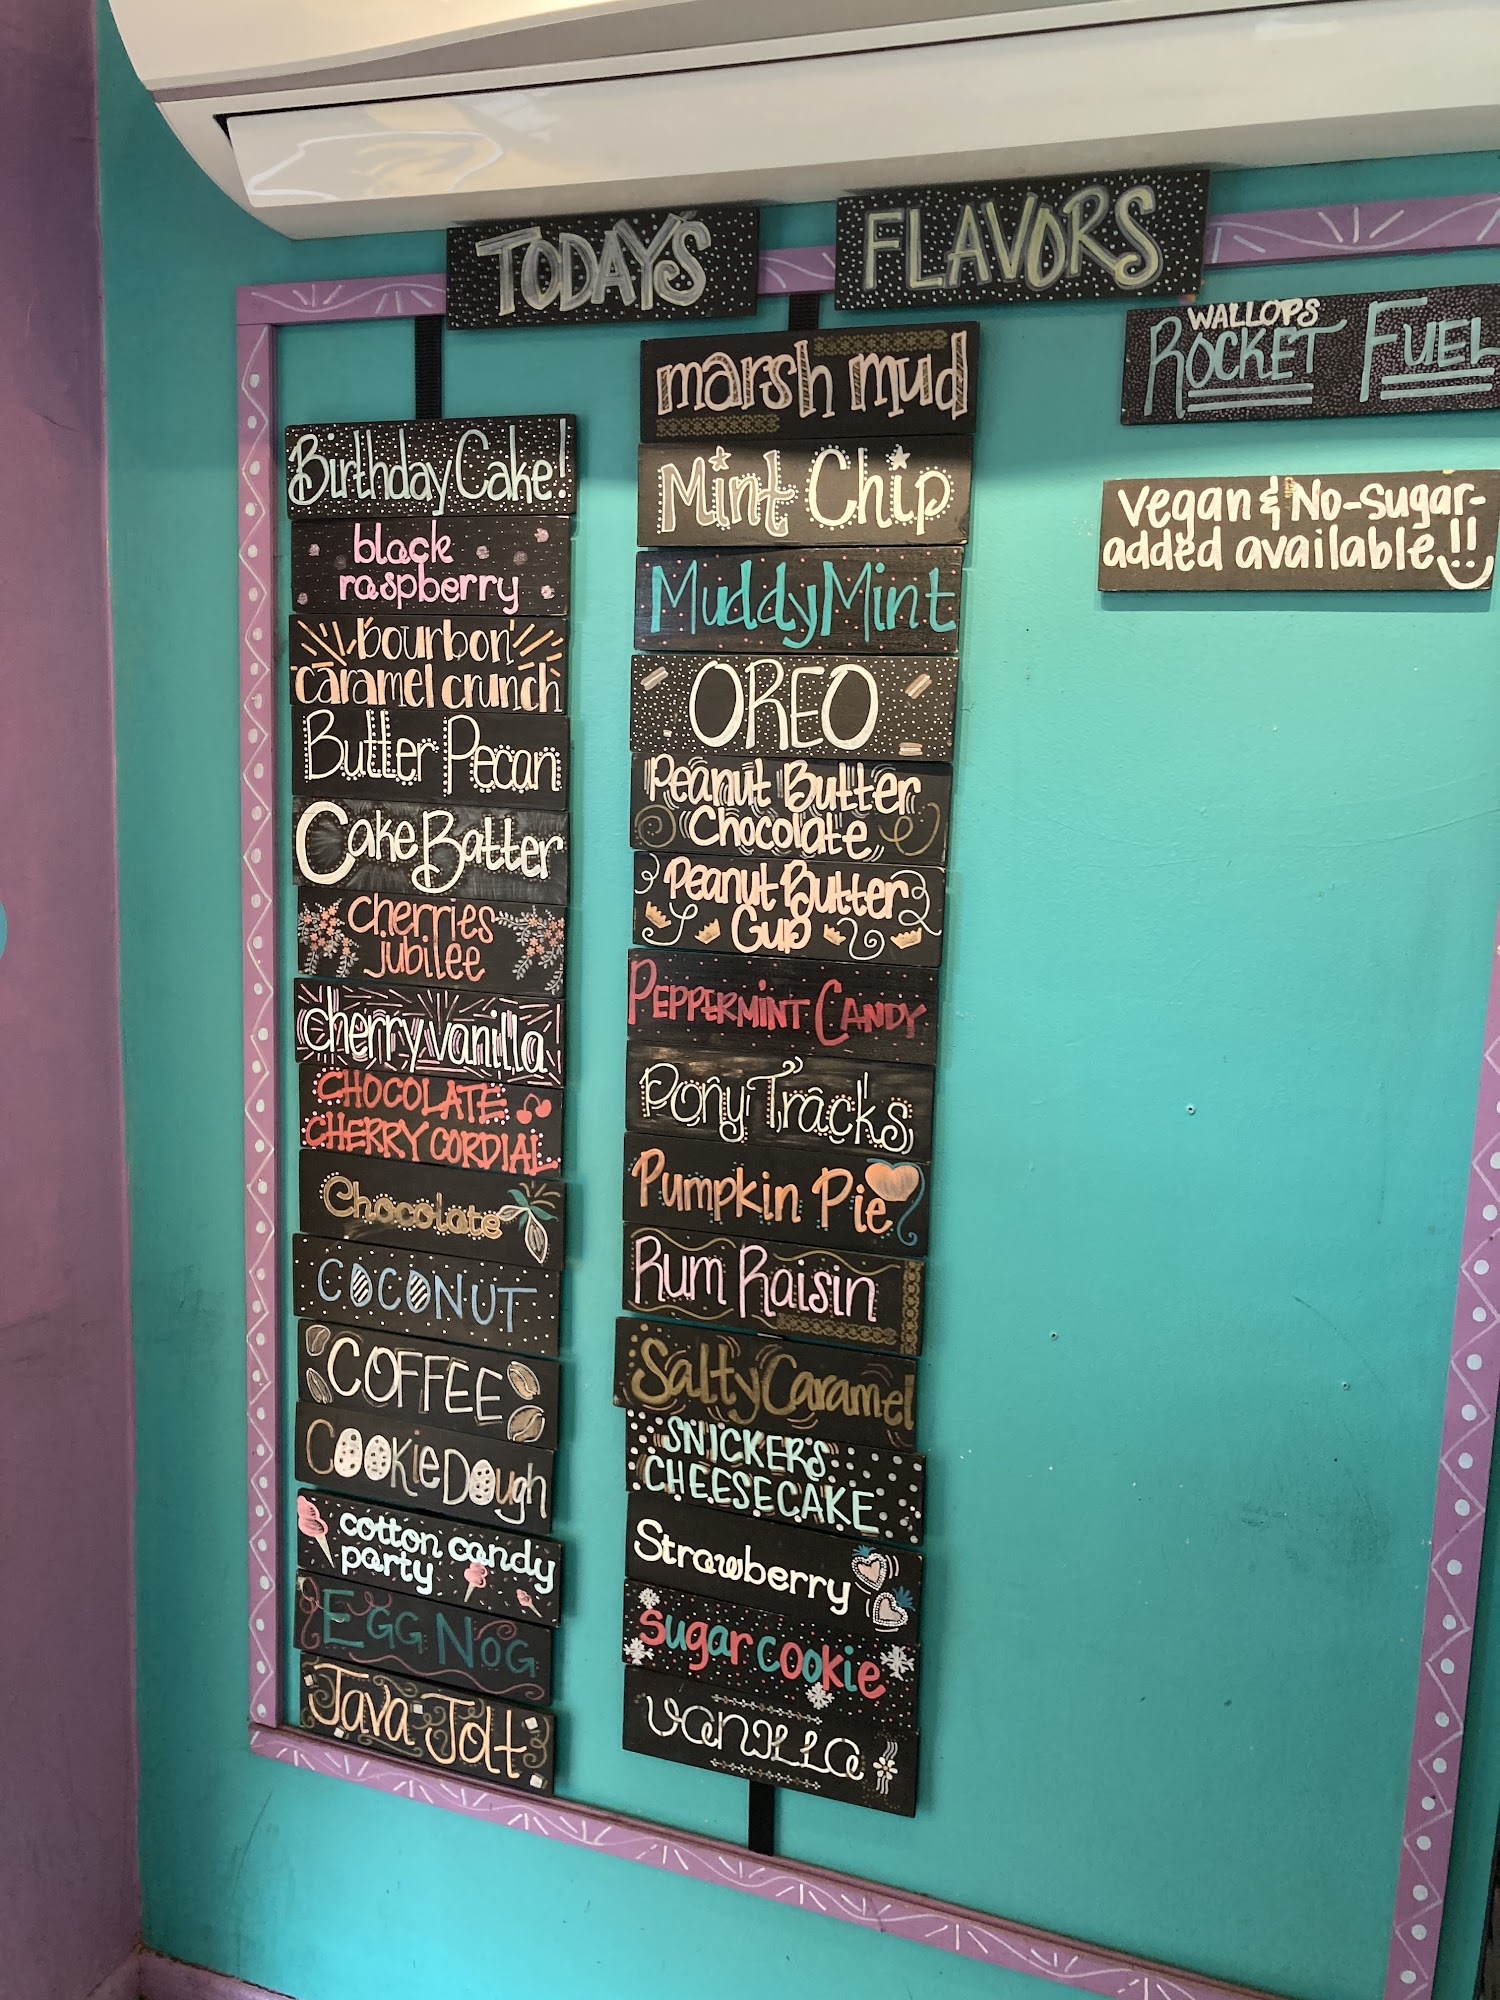 TODAYS
FLAVORS
Birthday Cake!
black
raspberry
bourbon
caramel crunch
Butter Pecan
Cake Batter
cherries
jubilee
cherry vanilla
CHOCOLATE
CHERRY CORDIAL
Chocolate
COCONUT
COFFEE
Cookie Dough
cotton candy
party
EGG NOG
Java Jolt
marsh mud
Mint Chip
Muddy Mint
OREO
Peanut Butter
Chocolate
Peanut Butter
Cup
PEPPERMINT CANDY
Pony Tracks
Pumpkin Pie
Rum Raisin
Salty Caramel
SNICKERS
CHEESECAKE
Strawberry
sugar cookie
vanilla
WALLOPS
ROCKET FUEL
Vegan & No-Sugar-
added available!!